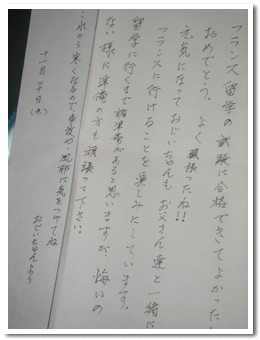 フランス留学の試験に合格できてよかった。
おめでとう。よく頑張ったね!!
元気になっておじいちゃんもお父さん達と一緒に
フランスに行けることを楽しみにしています。
留学に行くまで準準備があると思いますが、悔いの
ない様に準備の方も頑張って下さい。
これから寒くなるので、や風邪に気をつけてね
十一月三十日(水)
おじいちゃんより